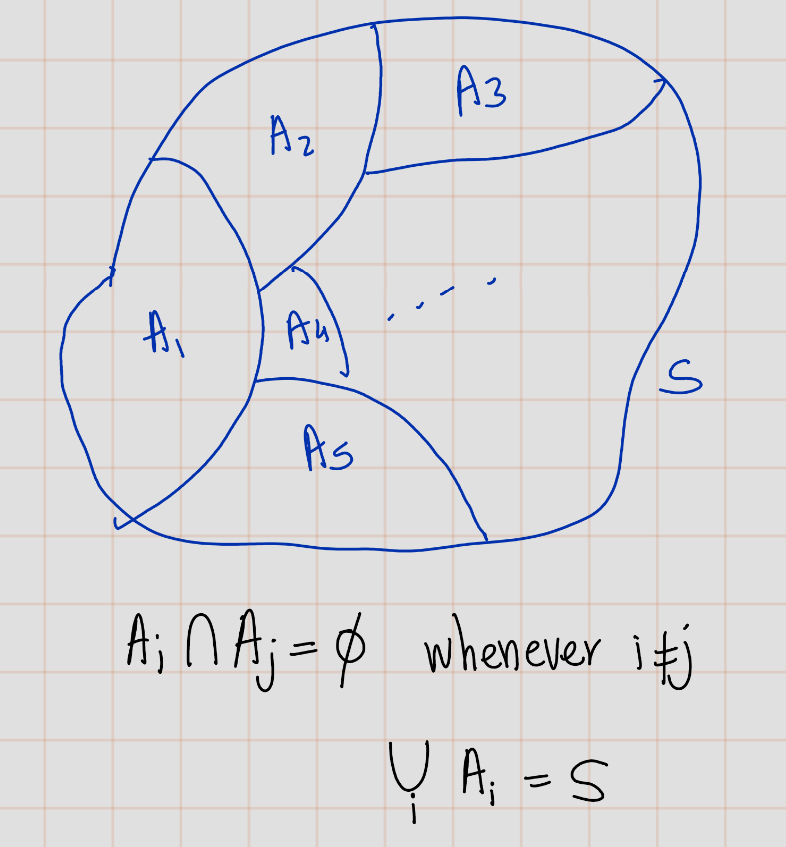 A3
A2
A1
A4
S
A5
Ai ∩ Aj = ϕ whenever i ≠ j
⋃i Ai = S